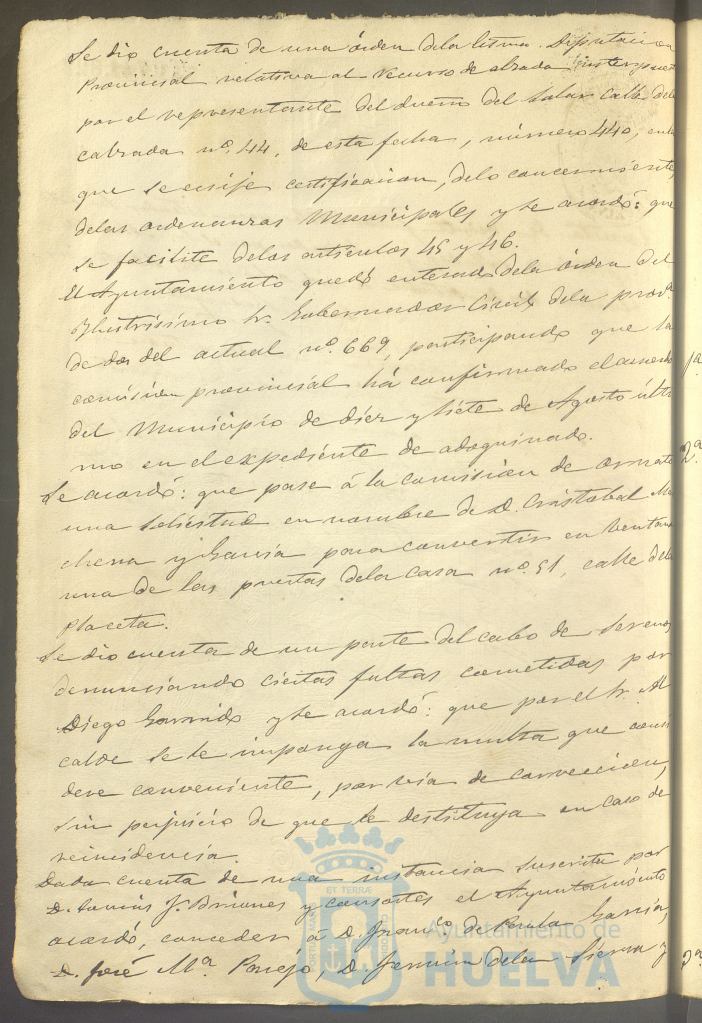 Se dio cuenta de una órden dela Iltma. Diputacion
Provincial relativa al recurso de alzada interpuest
por el representante del dueño del Solar calle dela
calzada nº. 44, de esta fecha, número 440, en la
que se exije certificacion, delo concerniente,
delas ordenanzas Municipales y se acordó: que
se facilite delos artículos 45 y 46.
El Ayuntamiento quedó enterado dela órden del
Yllustrisimo Sr. Gobernador Civil dela provª.
de dos del actual nº. 669, participando que la
comision provincial há confirmado el acuerdo
del Municipio de diez y siete de Agosto últi
mo en el expediente de adoquinado.
Se acordó: que pase á la comision de ornato
una solicitud en nombre de D. Cristobal Ma
chena y Garcia para convertir en ventana
una de las puertas dela casa nº. 51, calle dela
Placeta.
Se dio cuenta de un parte del cabo de Serenos
denunciando ciertas faltas cometidas por
Diego Garrido y se acordó: que por el Sr. Al
calde se le imponga la multa que consi
dere conveniente, por via de correccion,
sin perjuicio de que se le destituya en caso de
reincidencia.
Dada cuenta de una instancia suscrita por
D. J. Briones y consortes el Ayuntamiento
acordó, conceder á D. Franco. de Paula Garcia,
D. José Mª. Parejo, D. Fermin dela Sierra y
1ª
2ª
3ª
Ayuntamiento de
HUELVA